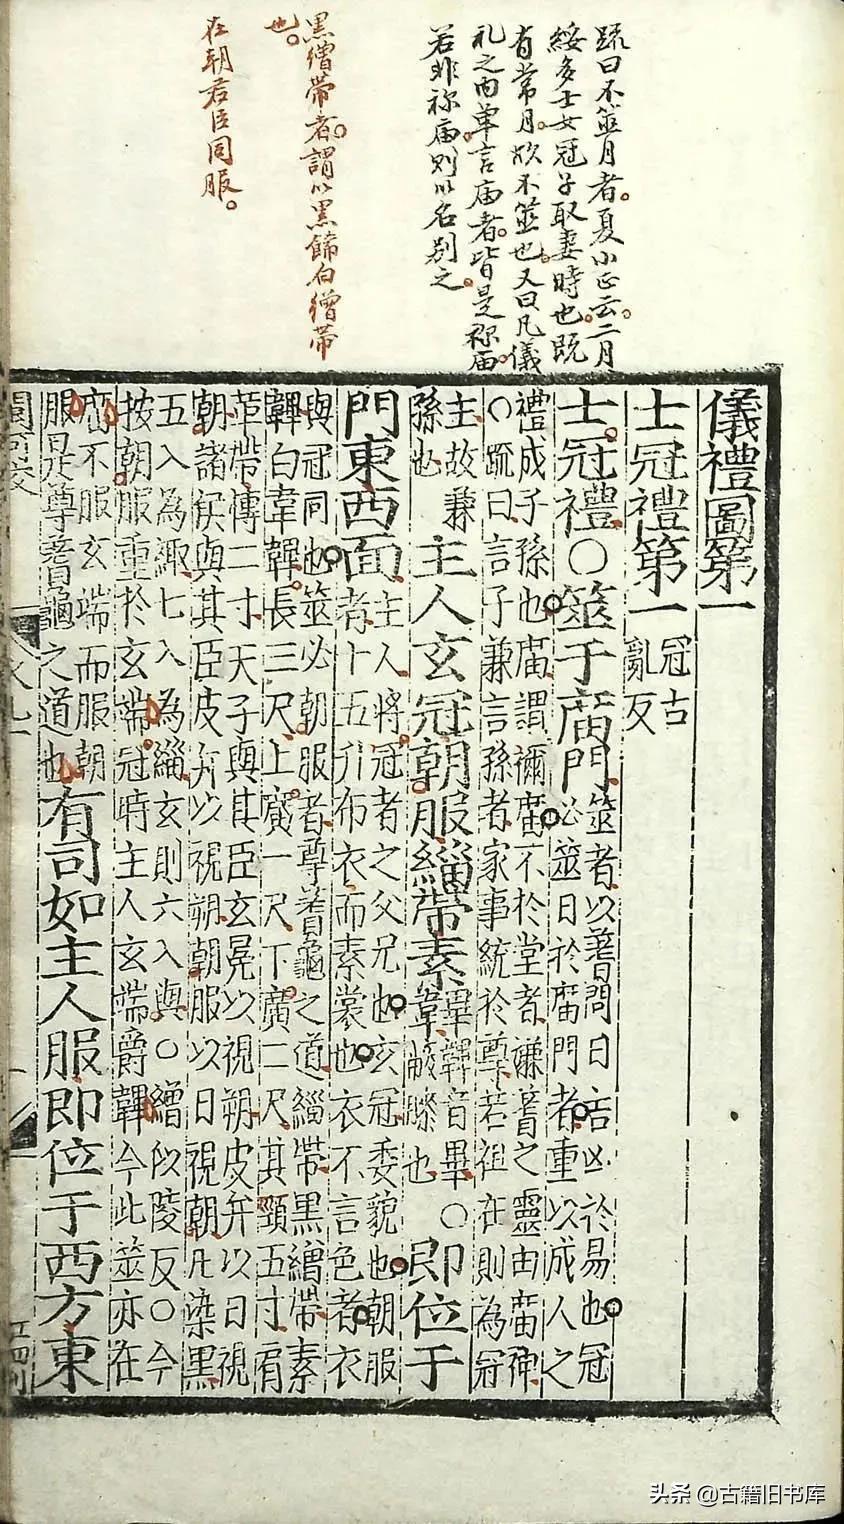 疏曰不筮月者。夏小正云。二月
綏多士女冠子取妻時也。既
有常月。故不筮也。又曰凡儀
礼之内單言庙者。皆是祢庙。
若非祢庙。則以名别之。
黑繒帶者。謂以黑餙白繒帶
也。
在朝君臣同服。
儀禮圖第一
士冠禮第一
冠古
亂反
士冠禮○筮于庿門
筮者以蓍問日吉凶於易也冠
必筮日於庿門者重以成人之
禮成子孫也庿謂禰庿不於堂者嫌蓍之靈由庿神
○疏曰言子兼言孫者家事統於尊若祖在則為冠
主故兼
孫也
主人玄冠朝服緇帶素
韠韠音畢○
韋蔽膝也
即位于
門東西面
主人將冠者之父兄也玄冠委貌也朝服
者十五升布衣而素裳也衣不言色者衣
與冠同也筮必朝服者尊蓍龜之道緇帶黑繒帶素
韠白韋韠長三尺上廣一尺下廣二尺其頸五寸肩
革帶博二寸天子與其臣玄冕以視朔皮弁以日視
朝諸侯與其臣皮弁以視朔朝服以日視朝凡染黑
五入為緅七入為緇玄則六入與○繒似陵反○今
按朝服重於玄端冠時主人玄端爵韠今此筮亦在
庿不服玄端而服朝
服是尊蓍龜之道也
有司如主人服即位于西方東